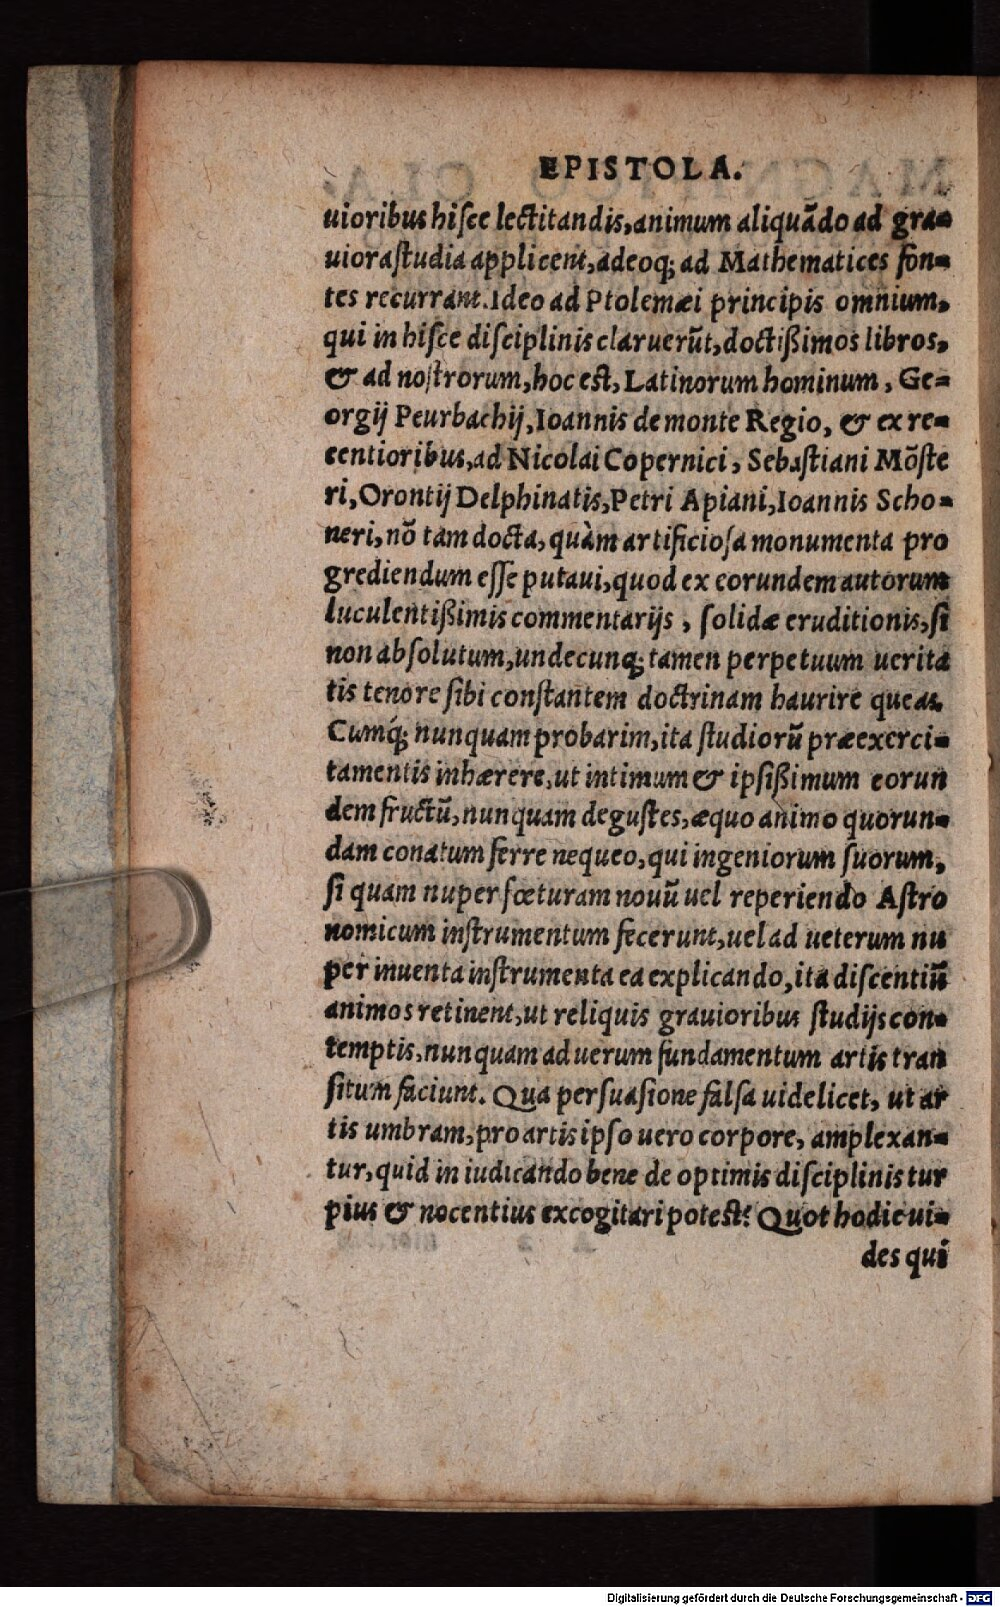 EPISTOLA.
uioribus hisce lectitandis, animum aliquādo ad gra-
uiora studia applicent, adeoq; ad Mathematices fon-
tes recurrant. Ideo ad Ptolemæi principis omnium,
qui in hisce disciplinis claruerūt, doctißimos libros,
& ad nostrorum, hoc est, Latinorum hominum, Ge-
orgij Peurbachij, Ioannis de monte Regio, & ex re-
centioribus, ad Nicolai Copernici, Sebastiani Mōste
ri, Orontij Delphinatis, Petri Apiani, Ioannis Scho-
neri, nō tam docta, quàm artificiosa monumenta pro
grediendum esse putaui, quod ex eorundem autorum
luculentißimis commentarijs, solidæ eruditionis, si
non absolutum, undecunq; tamen perpetuum uerita
tis tenore sibi constantem doctrinam haurire queas.
Cumq́; nunquam probarim, ita studiorū præexerci-
tamentis inhærere, ut intimum & ipsißimum eorun
dem fructū, nunquam degustes, æquo animo quorun-
dam conatum ferre nequeo, qui ingeniorum suorum,
si quam nuper fœturam nouū uel reperiendo Astro
nomicum instrumentum fecerunt, uel ad ueterum nu
per inuenta instrumenta ea explicando, ita discentiū
animos retinent, ut reliquis grauioribus studijs con-
temptis, nunquam ad uerum fundamentum artis tran
situm faciunt. Qua persuasione falsa uidelicet, ut ar
tis umbram, pro artis ipso uero corpore, amplexan-
tur, quid in iudicando bene de optimis disciplinis tur
pius & nocentius excogitari potest? Quot hodie ui-
des qui
Digitalisierung gefördert durch die Deutsche Forschungsgemeinschaft - DFG